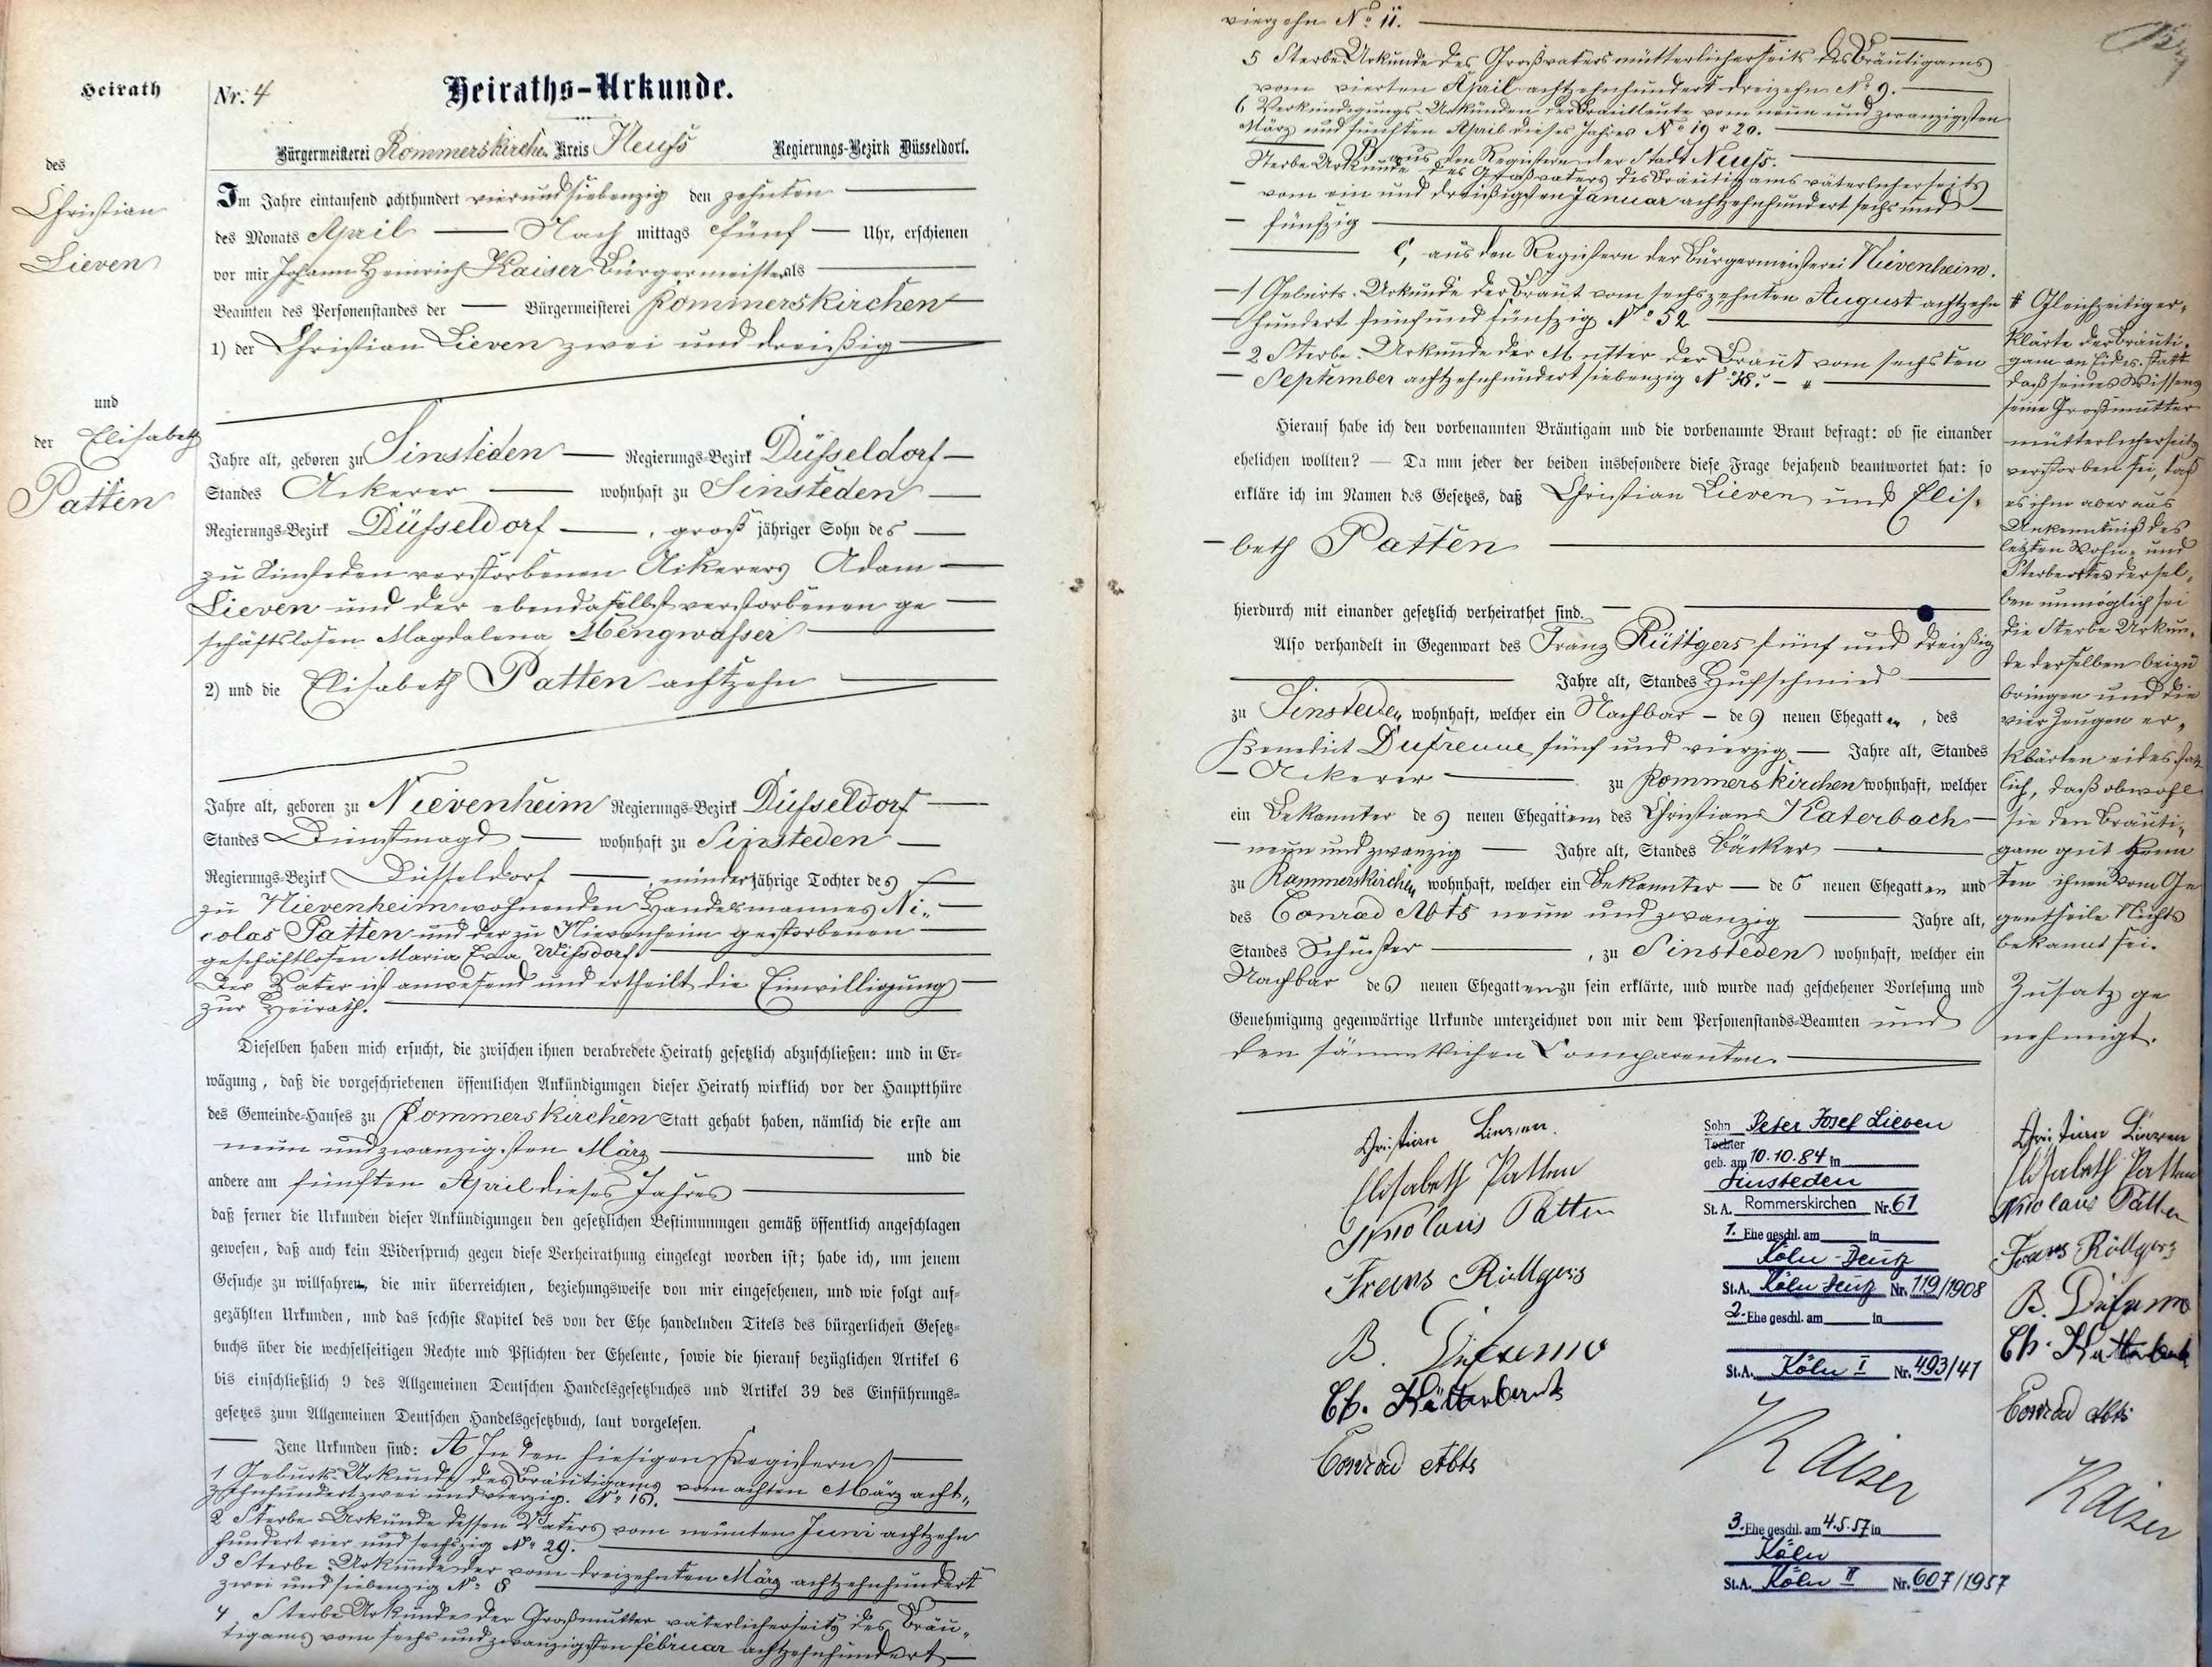 Heirath
des
Christian
Lieven
und
der Elisabeth
Patten
Nr. 4
Heiraths-Urkunde.
Bürgermeisterei Rommerskirchen Kreis Neuss Regierungs-Bezirk Düsseldorf.
Im Jahre eintausend achthundert vierundsiebenzig den zehnten
des Monats April Nach mittags fünf Uhr, erschienen
vor mir Johann Heinrich Kaiser Bürgermeister als
Beamten des Personenstandes der Bürgermeisterei Rommerskirchen
1) der Christian Lieven zwei und dreißig
Jahre alt, geboren zu Sinsteden Regierungs-Bezirk Düsseldorf
Standes Ackerer wohnhaft zu Sinsteden
Regierungs-Bezirk Düsseldorf, groß jähriger Sohn des
zu Sinsteden verstorbenen Ackerers Adam
Lieven und der ebendaselbst verstorbenen ge
schäftslosen Magdalena Mengwasser
2) und die Elisabeth Patten achtzehn
Jahre alt, geboren zu Nievenheim Regierungs-Bezirk Düsseldorf
Standes Dienstmagd wohnhaft zu Sinsteden
Regierungs-Bezirk Düsseldorf, minder jährige Tochter des
zu Nievenheim wohnenden Handelsmannes Ni-
colas Patten und der zu Nievenheim gestorbenen
geschäftlosen Maria Eva Wissdorf.
Der Vater ist anwesend und ertheilt die Einwilligung
zur Heirath.
Dieselben haben mich ersucht, die zwischen ihnen verabredete Heirath gesetzlich abzuschließen: und in Er-
wägung, daß die vorgeschriebenen öffentlichen Ankündigungen dieser Heirath wirklich vor der Hauptthüre
des Gemeinde-Hauses zu Rommerskirchen Statt gehabt haben, nämlich die erste am
neun und zwanzigsten März und die
andere am fünften April dieses Jahres
daß ferner die Urkunden dieser Ankündigungen den gesetzlichen Bestimmungen gemäß öffentlich angeschlagen
gewesen, daß auch kein Widerspruch gegen diese Verheirathung eingelegt worden ist; habe ich, um jenem
Gesuche zu willfahren, die mir überreichten, beziehungsweise von mir eingesehenen, und wie folgt auf-
gezählten Urkunden, und das sechste Kapitel des von der Ehe handelnden Titels des bürgerlichen Gesetz-
buchs über die wechselseitigen Rechte und Pflichten der Eheleute, sowie die hierauf bezüglichen Artikel 6
bis einschließlich 9 des Allgemeinen Deutschen Handelsgesetzbuches und Artikel 39 des Einführungs-
gesetzes zum Allgemeinen Deutschen Handelsgesetzbuch, laut vorgelesen.
Jene Urkunden sind: A In den hiesigen Registern
1 Geburts-Urkunde des Bräutigams vom achten März acht-
zehnhundert zwei und vierzig. No 16.
2 Sterbe-Urkunde dessen Vaters vom neunten Juni achtzehn
hundert vier und sechszig No 29.
3 Sterbe-Urkunde der vom dreizehnten März achtzehnhundert
zwei und siebenzig No 8
4 Sterbe-Urkunde der Großmutter väterlicherseits des Bräu-
tigams vom sechs und zwanzigsten februar achtzehnhundert
vierzehn No 11.
5 Sterbe-Urkunde des Großvaters mütterlicherseits des Bräutigams
vom vierten April achtzehnhundert dreizehn No 9.
6 Verkündigungs-Urkunden der Brautleute vom neun und zwanzigsten
März und fünften April dieses Jahres No 19 & 20.
aus den Registern der Stadt Neuss.
Sterbe-Urkunde des Großvaters des Bräutigams väterlicherseits
vom ein und dreißigsten Januar achtzehnhundert sechs und
fünfzig
C, aus den Registern der Bürgermeisterei Nievenheim.
1 Geburts-Urkunde der Braut vom sechszehnten August achtzehn
hundert fünf und fünfzig No 52
2 Sterbe-Urkunde der Mutter der Braut vom sechsten
September achtzehnhundert siebenzig No
Hierauf habe ich den vorbenannten Bräutigam und die vorbenannte Braut befragt: ob sie einander
ehelichen wollten? — Da nun jeder der beiden insbesondere diese Frage bejahend beantwortet hat: so
erkläre ich im Namen des Gesetzes, daß Christian Lieven und Elis-
beth Patten
hierdurch mit einander gesetzlich verheirathet sind.
Also verhandelt in Gegenwart des Franz Rüttgers fünf und dreißig
Jahre alt, Standes Hufschmied
zu Sinsteden wohnhaft, welcher ein Nachbar des neuen Ehegatten, des
Benedict Dufrenne fünf und vierzig Jahre alt, Standes
Ackerer zu Rommerskirchen wohnhaft, welcher
ein Bekannter des neuen Ehegatten des Christian Katerbach
neun und zwanzig Jahre alt, Standes Bäcker
zu Rommerskirchen wohnhaft, welcher ein Bekannter des neuen Ehegatten und
des Conrad Abts neun und zwanzig Jahre alt,
Standes Schuster, zu Sinsteden wohnhaft, welcher ein
Nachbar des neuen Ehegatten zu sein erklärte, und wurde nach geschehener Vorlesung und
Genehmigung gegenwärtige Urkunde unterzeichnet von mir dem Personenstands-Beamten und
den sämmtlichen Comparenten.
Christian Lieven
Elisabeth Patten
Nicolaus Patten
Frans Rüttgers
B. Dufrenne
Ch. Katterbach
Conrad Abts
Kaiser
Sohn Peter Josef Lieven
Tochter
geb. am 10.10.84 in
Sinsteden
St.A. Rommerskirchen Nr. 61
1. Ehe geschl. am in
Köln-Deutz
St.A. Köln-Deutz Nr. 119/1908
2. Ehe geschl. am in
St.A. Köln I Nr. 493/41
3. Ehe geschl. am 4.5.57 in
Köln
St.A. Köln II Nr. 607/1957
# Gleichzeitig er-
klärte der Bräuti-
gam an Eides statt
daß seines Wissens
seine Großmutter
mütterlicherseits
verstorben sei, daß
es ihm aber aus
Unkenntniß des
letzten Wohn- und
Sterbeortes dersel-
ben unmöglich sei
die Sterbe Urkun-
de derselben beizu
bringen und die
vier Zeugen er-
klärten eides statt
lich, daß obwohl
sie den Bräuti-
gam gut kenn
ten ihnen vom Ge
gentheile Nichts
bekannt sei.
Zusatz ge
nehmigt.
Christian Lieven
Elisabeth Patten
Nicolaus Patten
Frans Rüttgers
B. Dufrenne
Ch. Katterbach
Conrad Abts
Kaiser